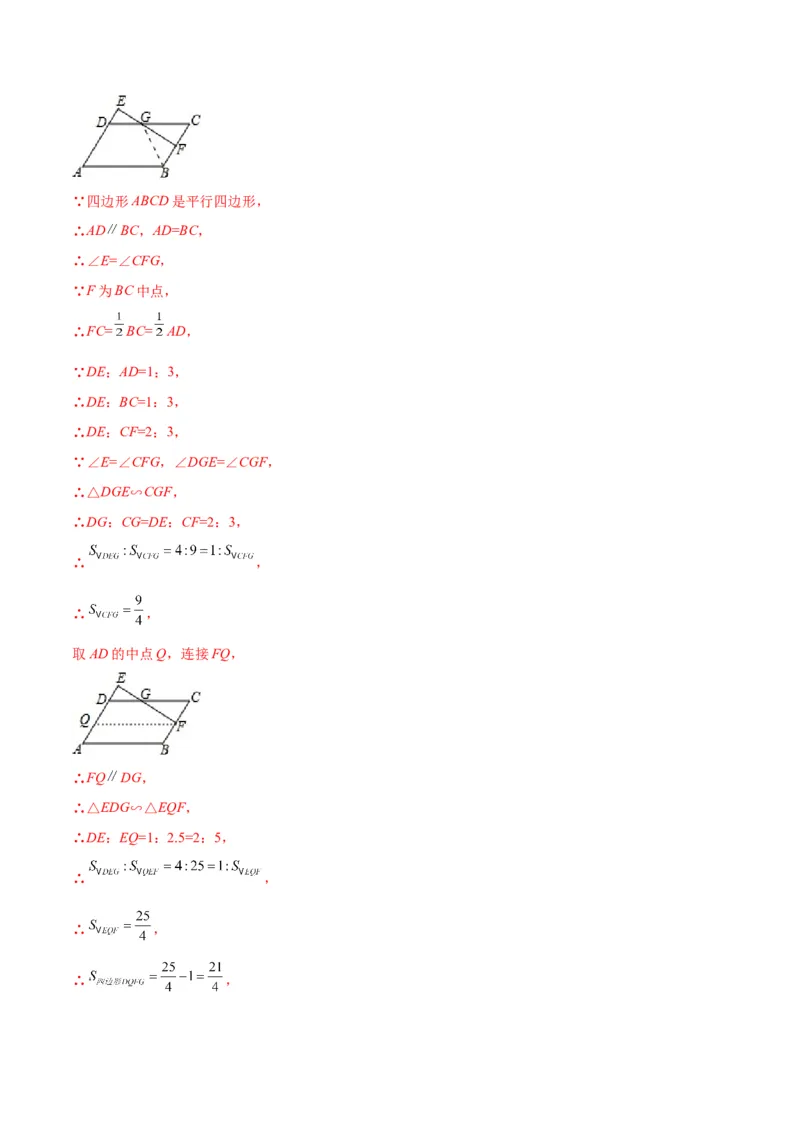 E
D G C
F
A B
∵四边形ABCD是平行四边形，
∴AD∥BC，AD=BC，
∴∠E=∠CFG，
∵F为BC中点，
∴FC=1/2BC=1/2AD，
∵DE：AD=1：3，
∴DE：BC=1：3，
∴DE：CF=2：3，
∵∠E=∠CFG，∠DGE=∠CGF，
∴△DGE∽CGF，
∴DG：CG=DE：CF=2：3，
∴S_{∨DEG}:S_{∨CFG}=4:9=1:S_{∨CFG}，
∴S_{∨CFG}=9/4，
取AD的中点Q，连接FQ，
E
D G C
Q F
A B
∴FQ∥DG，
∴△EDG∽△EQF，
∴DE：EQ=1：2.5=2：5，
∴S_{∨DEG}:S_{∨QEF}=4:25=1:S_{∨EQF}，
∴S_{∨EQF}=25/4，
∴S_{四边形DQFG}=25/4-1=21/4，